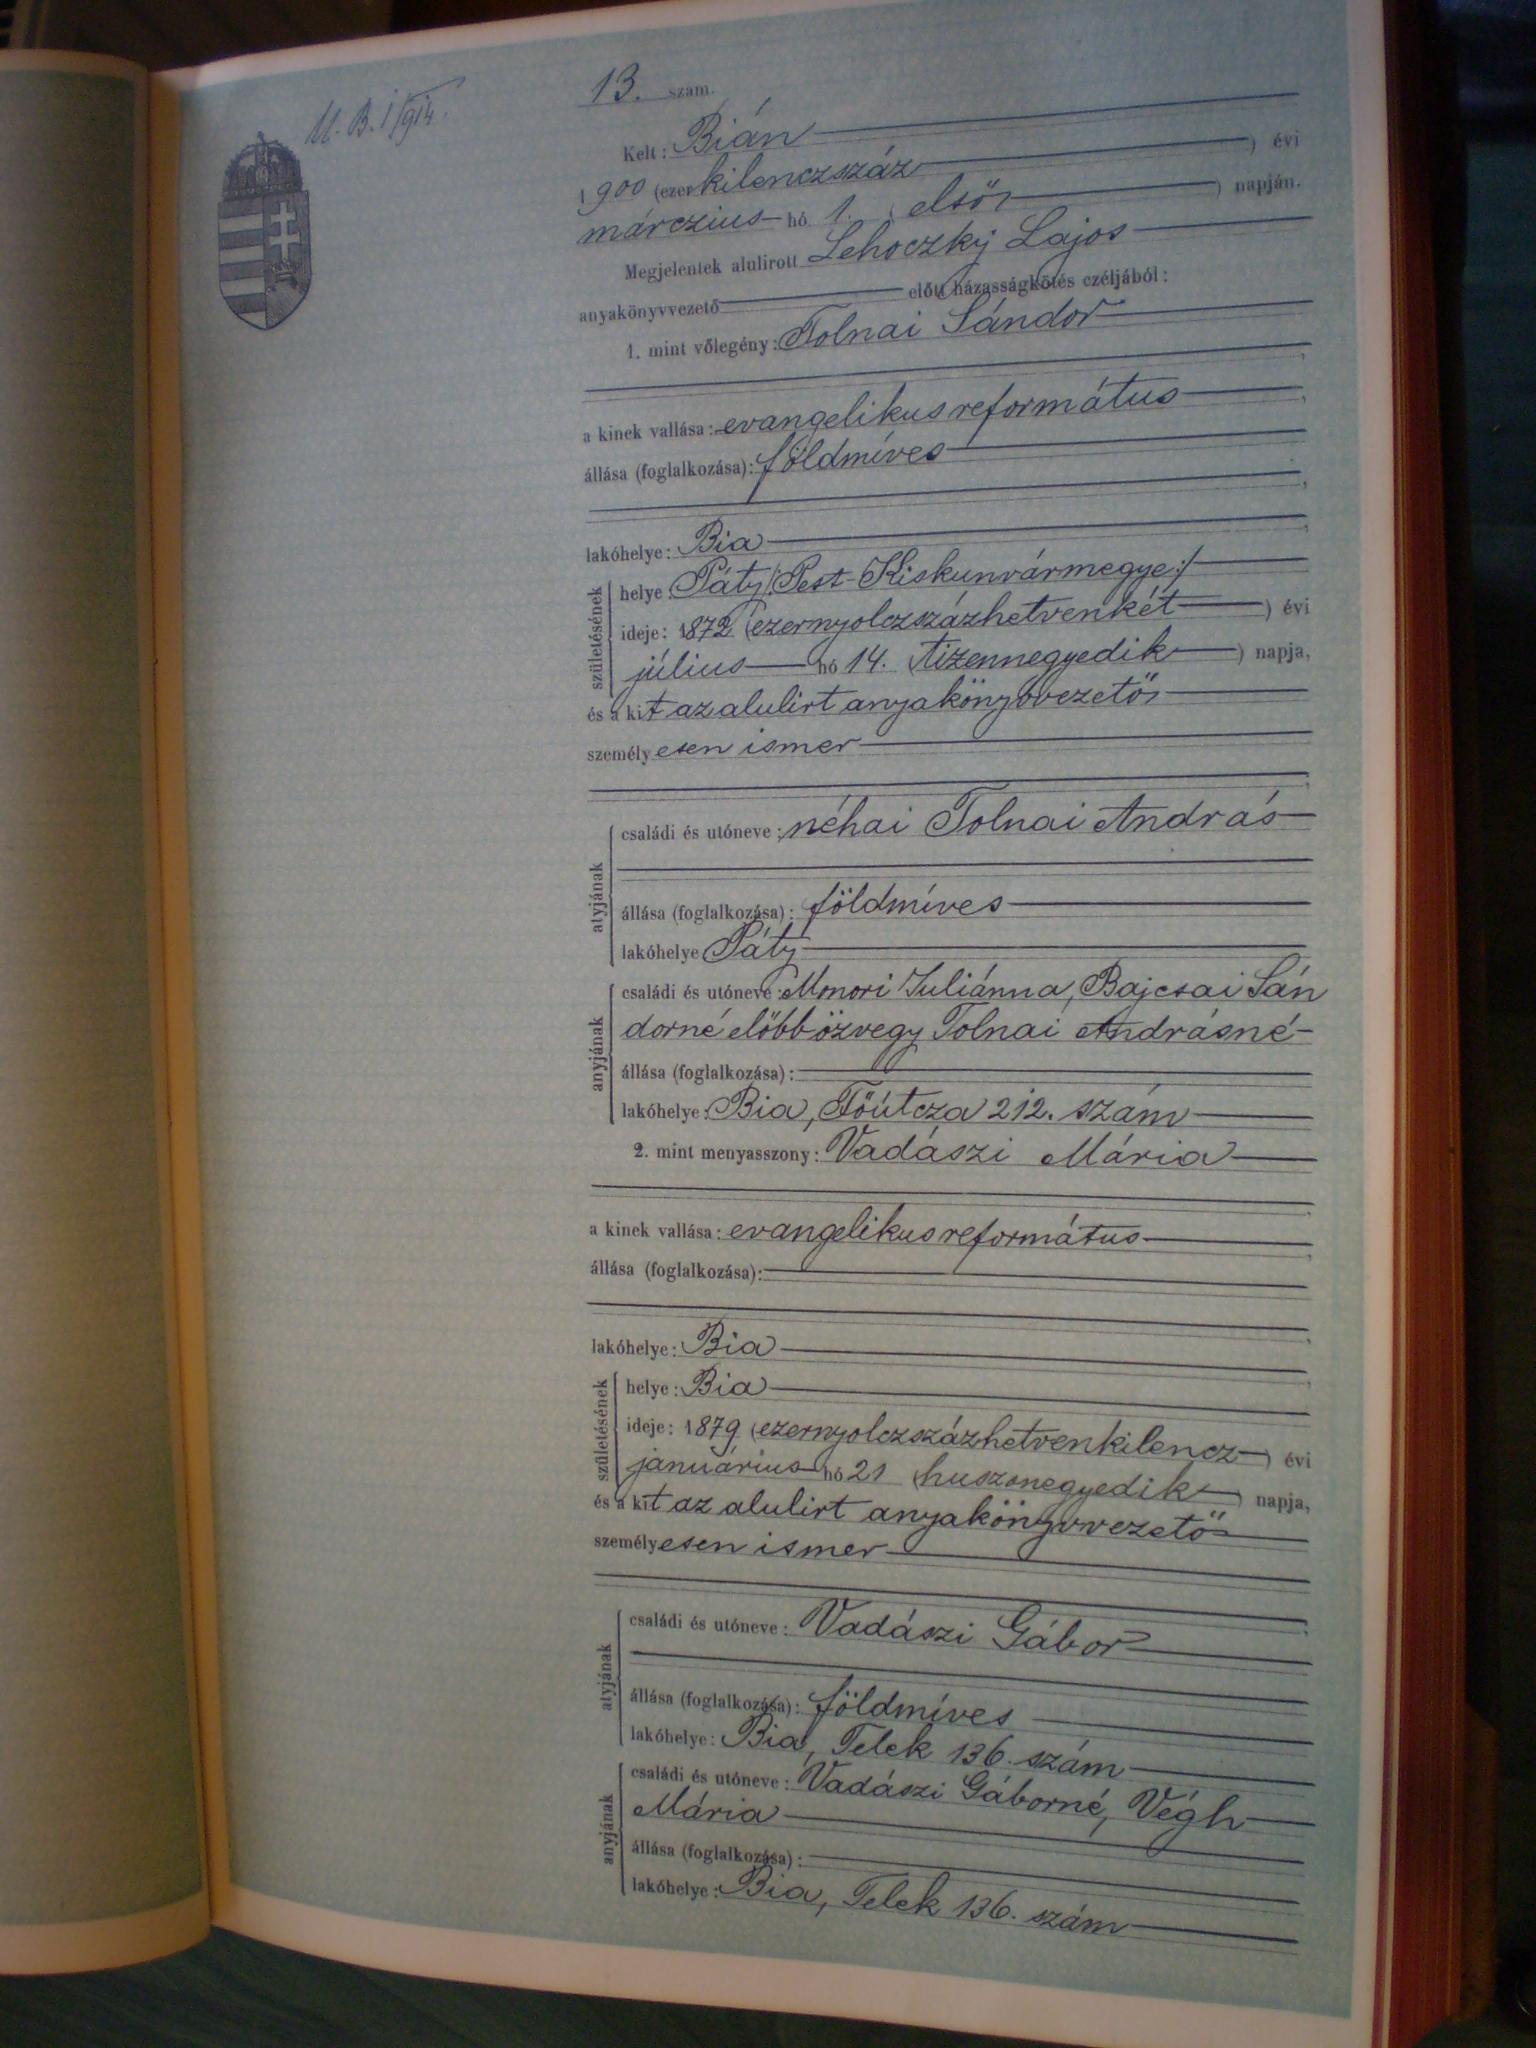 U. B. 1/914.
13. szam.
Kelt: Bián
1900 (ezerkilenczszáz ) évi
márczius hó 1. (első ) napján.
Megjelentek alulirott Lehoczky Lajos
anyakönyvvezető előtt házasságkötés czéljából:
1. mint vőlegény: Tolnai Sándor
a kinek vallása: evangelikus református
állása (foglalkozása): földmíves
lakóhelye: Bia
születésének
helye Páty /: Pest-Kiskunvármegye :/
ideje: 1872 (ezernyolczszázhetvenkét ) évi
július hó 14. (tizennegyedik ) napja,
és a kit az alulirt anyakönyvvezető
személyesen ismer
atyjának
családi és utóneve: néhai Tolnai András
állása (foglalkozása): földmíves
lakóhelye Páty
anyjának
családi és utóneve: Monori Juliánna, Bajcsai Sán
dorné előbb özvegy Tolnai Andrásné
állása (foglalkozása):
lakóhelye: Bia, Főútcza 212. szám
2. mint menyasszony: Vadászi Mária
a kinek vallása: evangelikus református
állása (foglalkozása):
lakóhelye: Bia
születésének
helye: Bia
ideje: 1879 (ezernyolczszázhetvenkilencz ) évi
januárius hó 21 (huszonegyedik ) napja,
és a kit az alulirt anyakönyvvezető
személyesen ismer
atyjának
családi és utóneve: Vadászi Gábor
állása (foglalkozása): földmíves
lakóhelye: Bia, Telek 136. szám
anyjának
családi és utóneve: Vadászi Gáborné, Végh
Mária
állása (foglalkozása):
lakóhelye: Bia, Telek 136. szám